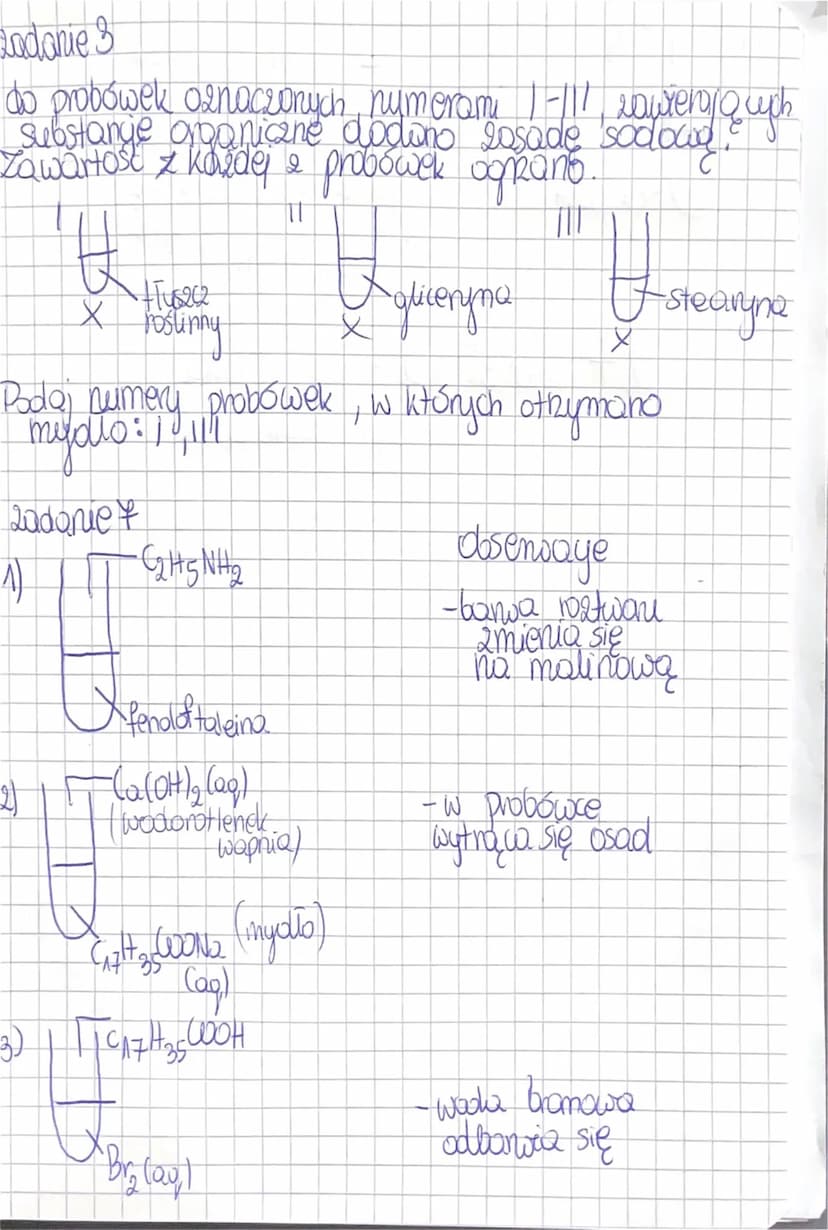 zadanie 3
do probówek oznaczonych numerami I-III, zawierających
substancje organiczne dodano zasadę sodową.
Zawartość z każdej z probówek ogrzano.
I
II
III
tłuszcz
roślinny
gliceryna
stearyna
X
X
X
Podaj numery probówek, w których otrzymano
mydło: I, III
zadanie 7
1)
C2H5NH2
fenoloftaleina
obserwacje
-barwa roztworu
zmienia się
na malinową
2)
Ca(OH)2(aq)
(wodorotlenek
wapnia)
C17H35COONa (mydło)
(aq)
-w probówce
wytrąca się osad
3)
C17H35COOH
Br2(aq)
-woda bromowa
odbarwia się